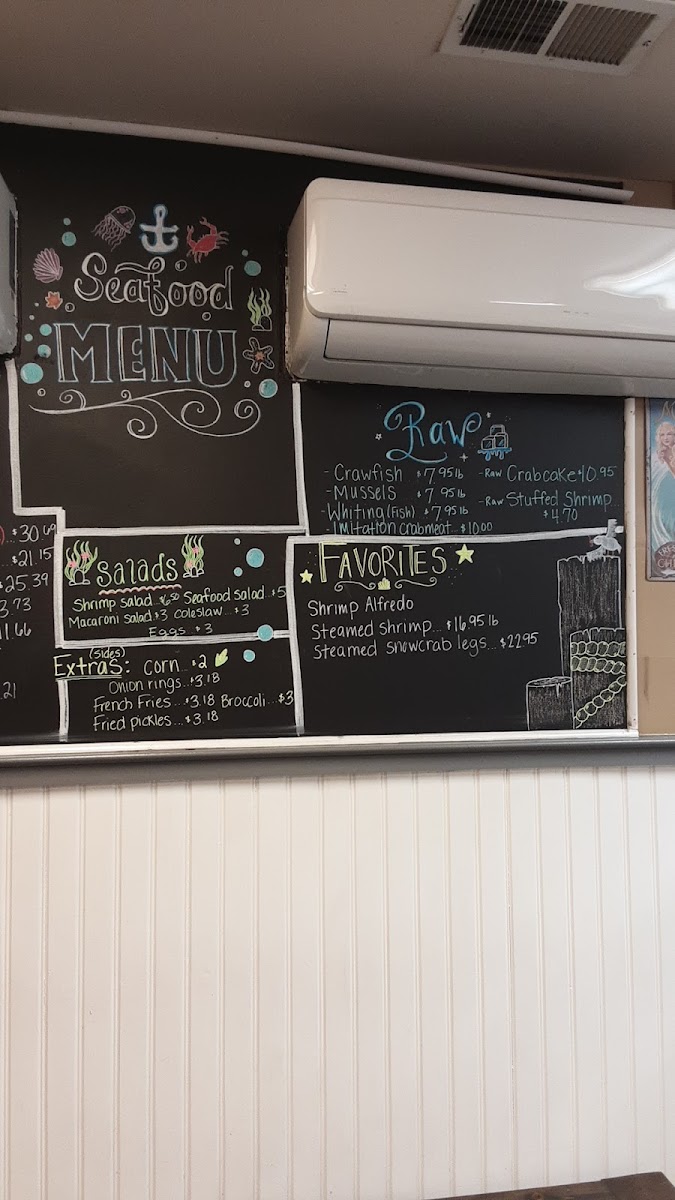 Seafood
MENU
Raw
- Crawfish $7.95 lb
- Mussels $7.95 lb
- Whiting (Fish) $7.95 lb
- Imitation crabmeat...$10.00
- Raw Crabcake $10.95
- Raw Stuffed Shrimp...
$4.70
$30.69
...$21.15
$25.39
3.73
1.66
.21
Salads
Shrimp salad... Seafood salad...$5
Macaroni salad $3 Coleslaw...$3
Eggs...$3
(Sides)
Extras: Corn...$2
Onion rings...$3.18
French Fries...$3.18 Broccoli...$3
Fried pickles...$3.18
FAVORITES
Shrimp Alfredo
Steamed shrimp...$16.95 lb
Steamed snowcrab legs...$22.95